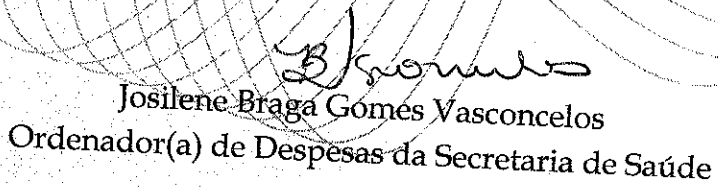 Josilene Braga Gomes Vasconcelos
Ordenador(a) de Despesas da Secretaria de Saúde